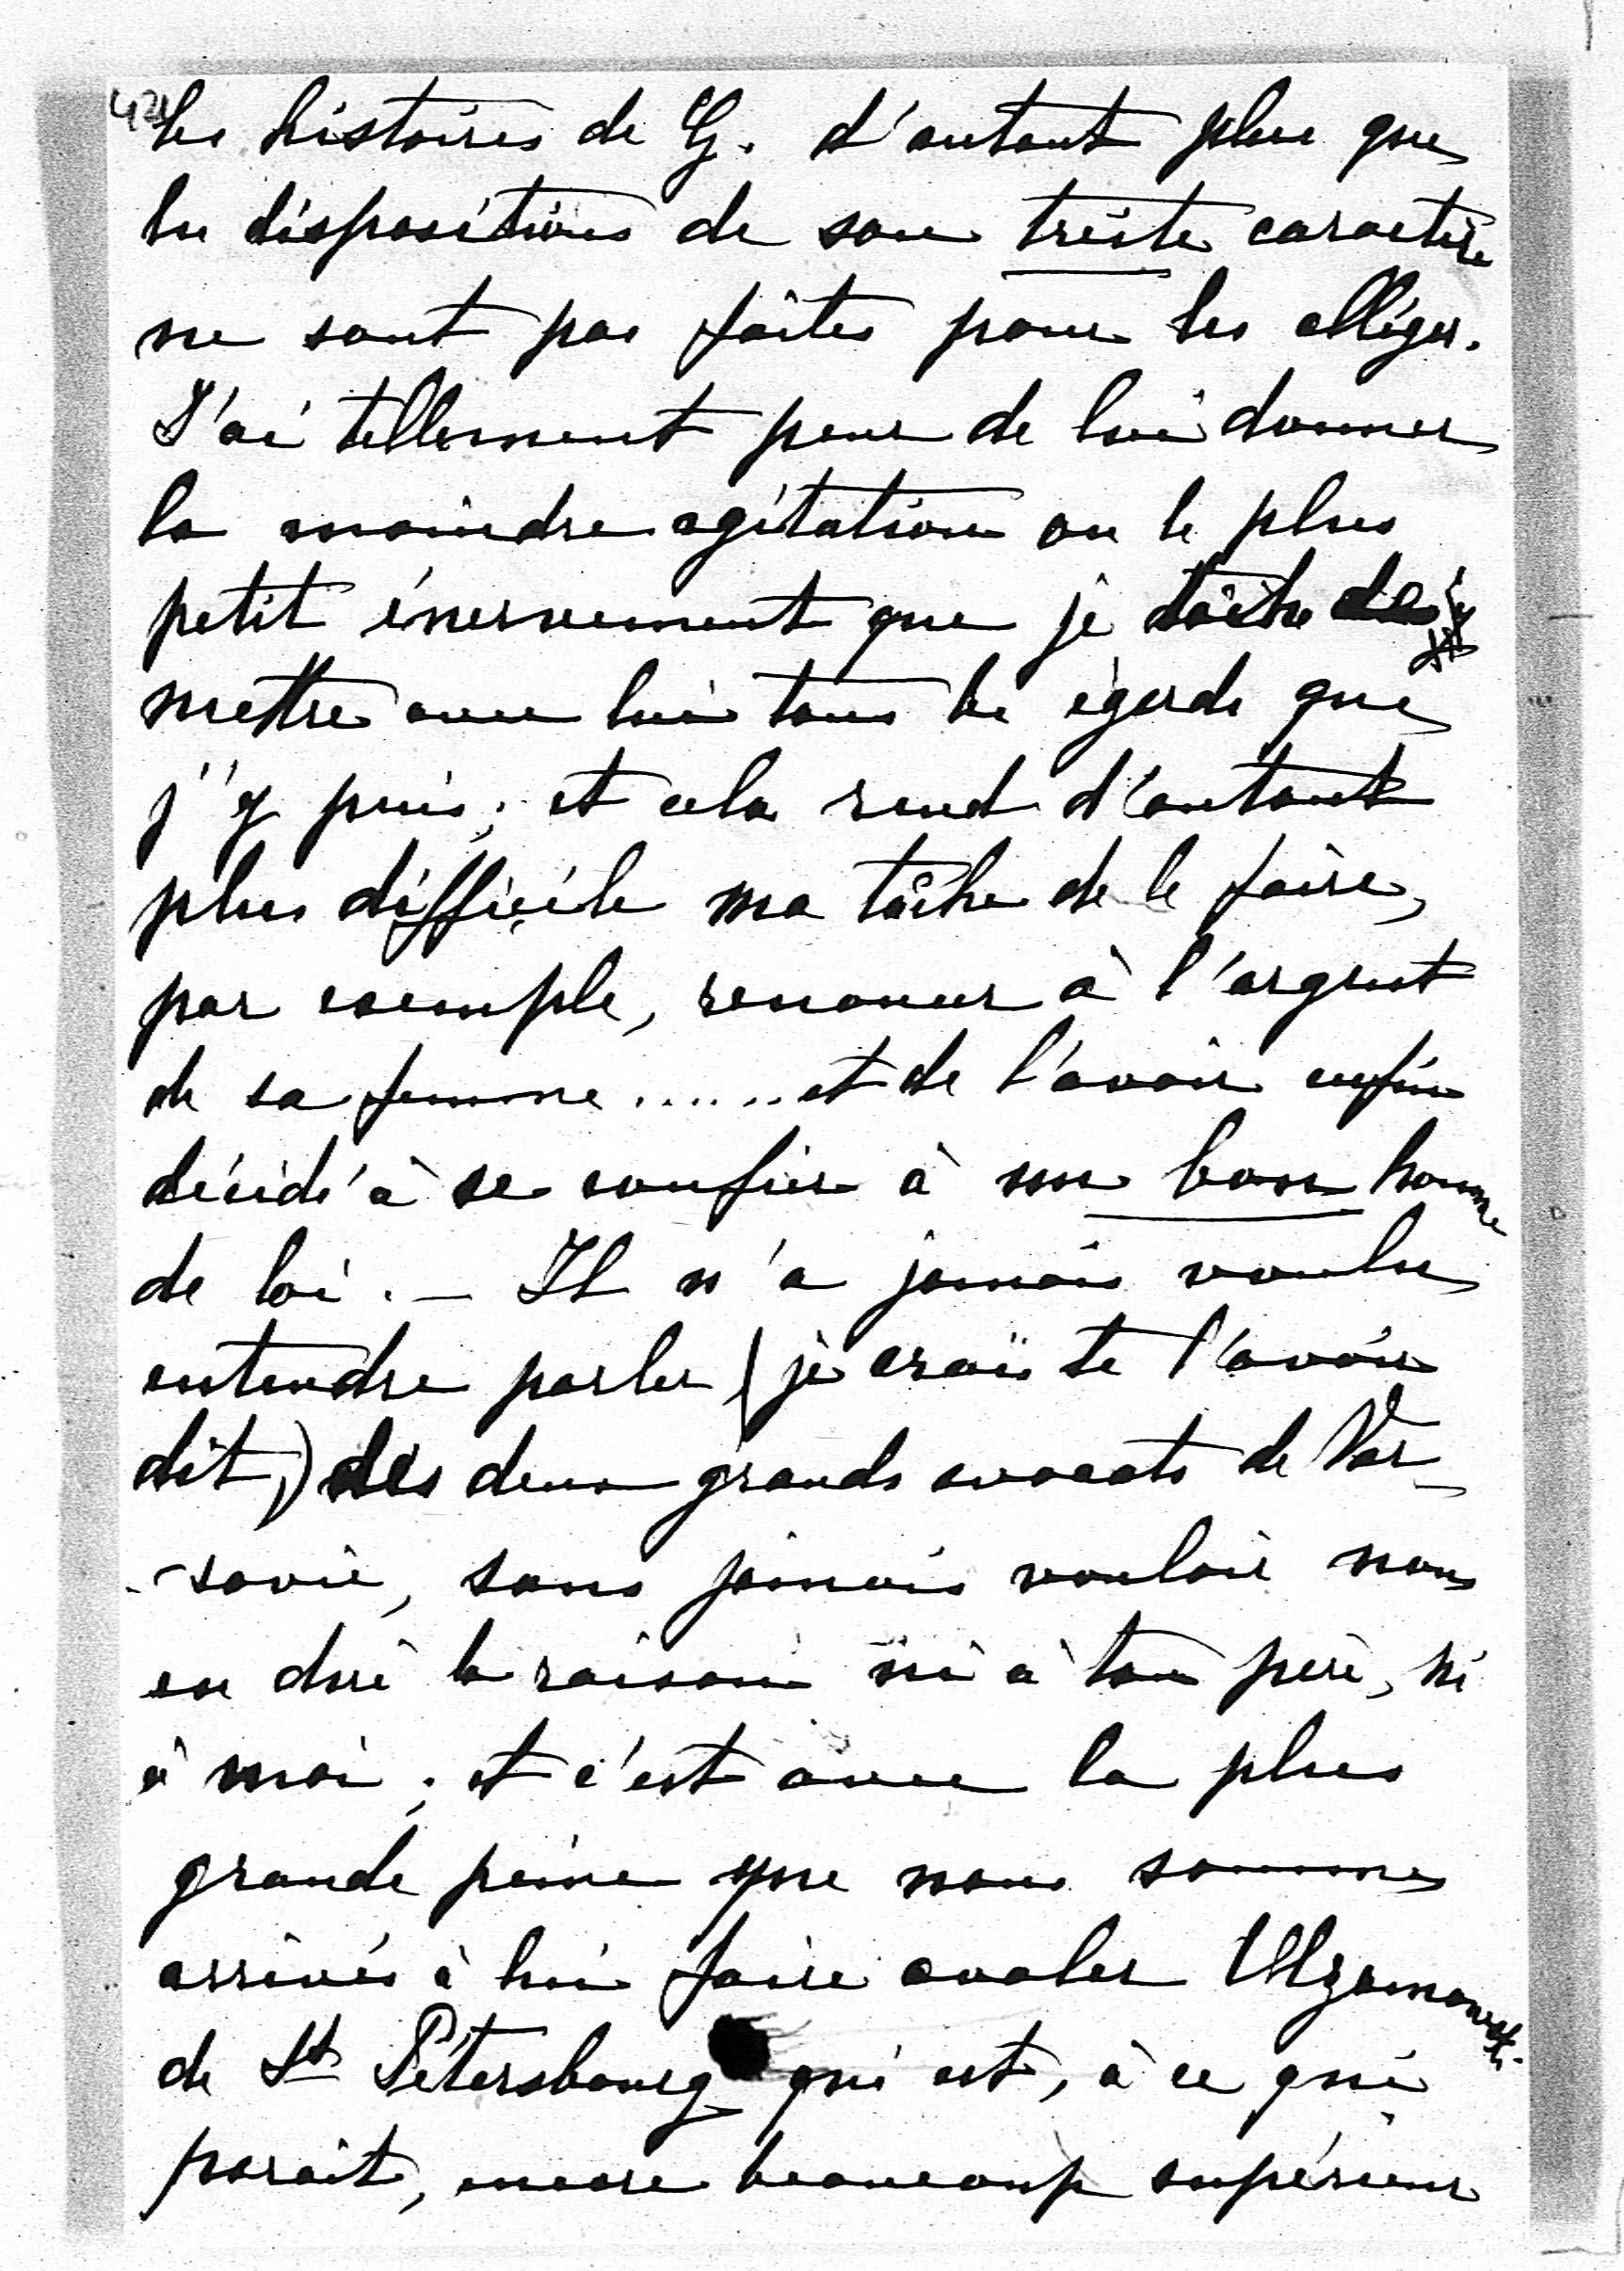 les histoires de G. d'autant plus que
les dispositions de son triste caractère
ne sont pas faites pour les alléger.
J'ai tellement peur de lui donner
la moindre agitation ou le plus
petit énervement que je tâche de
mettre avec lui tous les égards que
j'y puis ; et cela rend d'autant
plus difficile ma tâche de le faire,
par exemple, renoncer à l'argent
de sa femme ...... et de l'avoir enfin
décidé à se confier à un bon homme
de loi. — Il n'a jamais voulu
entendre parler (je crois te l'avoir
dit,) des deux grands avocats de Var-
-sovie, sans jamais vouloir nous
en dire la raison ni à ton père, ni
à moi ; et c'est avec la plus
grande peine que nous sommes
arrivés à lui faire avaler
de St Pétersbourg qui est, à ce qui
parait, encore beaucoup supérieur